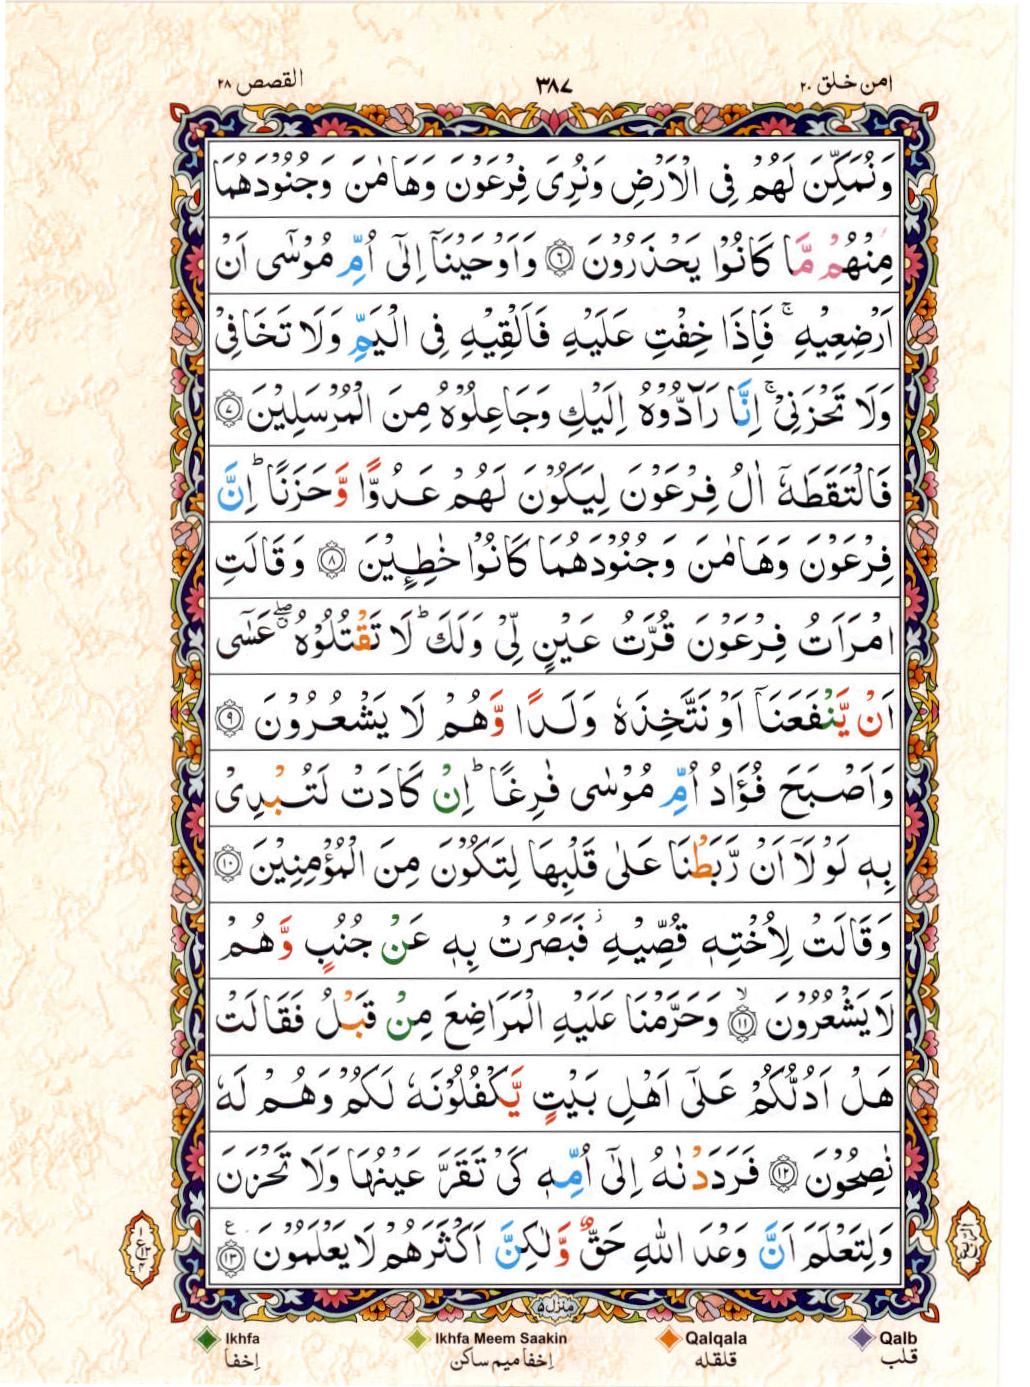 امن خلق ۲۰
۳۸۷
القصص ۲۸
وَنُمَكِّنَ لَهُمْ فِى الْاَرْضِ وَنُرِىَ فِرْعَوْنَ وَهَامٰنَ وَجُنُوْدَهُمَا
مِنْهُمْ مَّا كَانُوْا يَحْذَرُوْنَ ۝۶ وَاَوْحَيْنَاۤ اِلٰٓى اُمِّ مُوْسٰٓى اَنْ
اَرْضِعِيْهِ ۚ فَاِذَا خِفْتِ عَلَيْهِ فَاَلْقِيْهِ فِى الْيَمِّ وَلَا تَخَافِىْ
وَلَا تَحْزَنِىْ ۚ اِنَّا رَآدُّوْهُ اِلَيْكِ وَجَاعِلُوْهُ مِنَ الْمُرْسَلِيْنَ ۝۷
فَالْتَقَطَهٗۤ اٰلُ فِرْعَوْنَ لِيَكُوْنَ لَهُمْ عَدُوًّا وَّحَزَنًا ؕ اِنَّ
فِرْعَوْنَ وَهَامٰنَ وَجُنُوْدَهُمَا كَانُوْا خٰطِـِٕيْنَ ۝۸ وَقَالَتِ
امْرَاَتُ فِرْعَوْنَ قُرَّتُ عَيْنٍ لِّىْ وَلَكَ ؕ لَا تَقْتُلُوْهُ ۖۗ عَسٰٓى
اَنْ يَّنْفَعَنَاۤ اَوْ نَتَّخِذَهٗ وَلَدًا وَّهُمْ لَا يَشْعُرُوْنَ ۝۹
وَاَصْبَحَ فُؤَادُ اُمِّ مُوْسٰى فٰرِغًا ؕ اِنْ كَادَتْ لَتُبْدِىْ
بِهٖ لَوْلَاۤ اَنْ رَّبَطْنَا عَلٰى قَلْبِهَا لِتَكُوْنَ مِنَ الْمُؤْمِنِيْنَ ۝۱۰
وَقَالَتْ لِاُخْتِهٖ قُصِّيْهِ ؗ فَبَصُرَتْ بِهٖ عَنْ جُنُبٍ وَّهُمْ
لَا يَشْعُرُوْنَ ۝۱۱ ۙ وَحَرَّمْنَا عَلَيْهِ الْمَرَاضِعَ مِنْ قَبْلُ فَقَالَتْ
هَلْ اَدُلُّكُمْ عَلٰٓى اَهْلِ بَيْتٍ يَّكْفُلُوْنَهٗ لَكُمْ وَهُمْ لَهٗ
نٰصِحُوْنَ ۝۱۲ فَرَدَدْنٰهُ اِلٰٓى اُمِّهٖ كَىْ تَقَرَّ عَيْنُهَا وَلَا تَحْزَنَ
وَلِتَعْلَمَ اَنَّ وَعْدَ اللّٰهِ حَقٌّ وَّلٰكِنَّ اَكْثَرَهُمْ لَا يَعْلَمُوْنَ ۝۱۳ ع
منزل ۵
Ikhfa Ikhfa Meem Saakin Qalqala Qalb
اِخفا اِخفا میم ساکن قلقلہ قلب